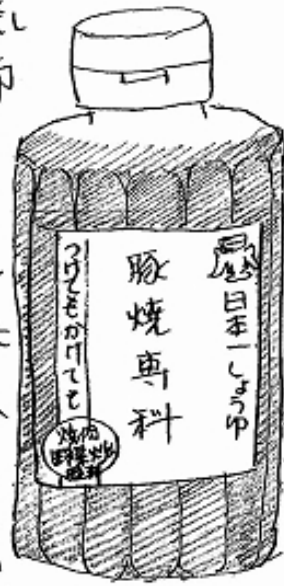 日本一しょうゆ
豚焼専科
つけてもかけても
焼肉
野菜炒め